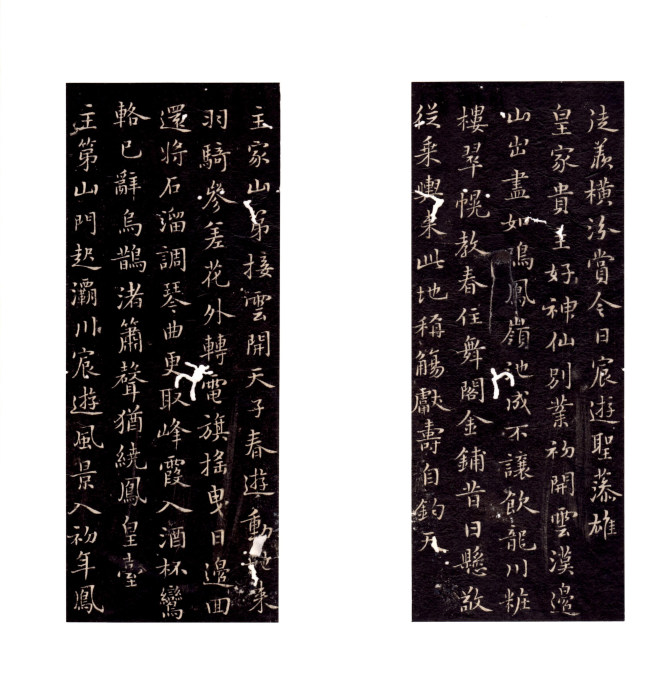 法羨橫汾賞今日宸遊聖藻雄
皇家貴主好神仙別業初開雲漢邊
山出盡如鳴鳳嶺池成不讓飲龍川粧
樓翠幌教春住舞閣金鋪昔日懸敬
從乘輿來此地稱觴獻壽自鈞天
主家山第接雲開天子春遊動地來
羽騎參差花外轉電旗搖曳日邊回
還將石溜調琴曲更取峰霞入酒杯鸞
輅已辭烏鵲渚簫聲猶繞鳳皇臺
主第山門起灞川宸遊風景入初年鳳